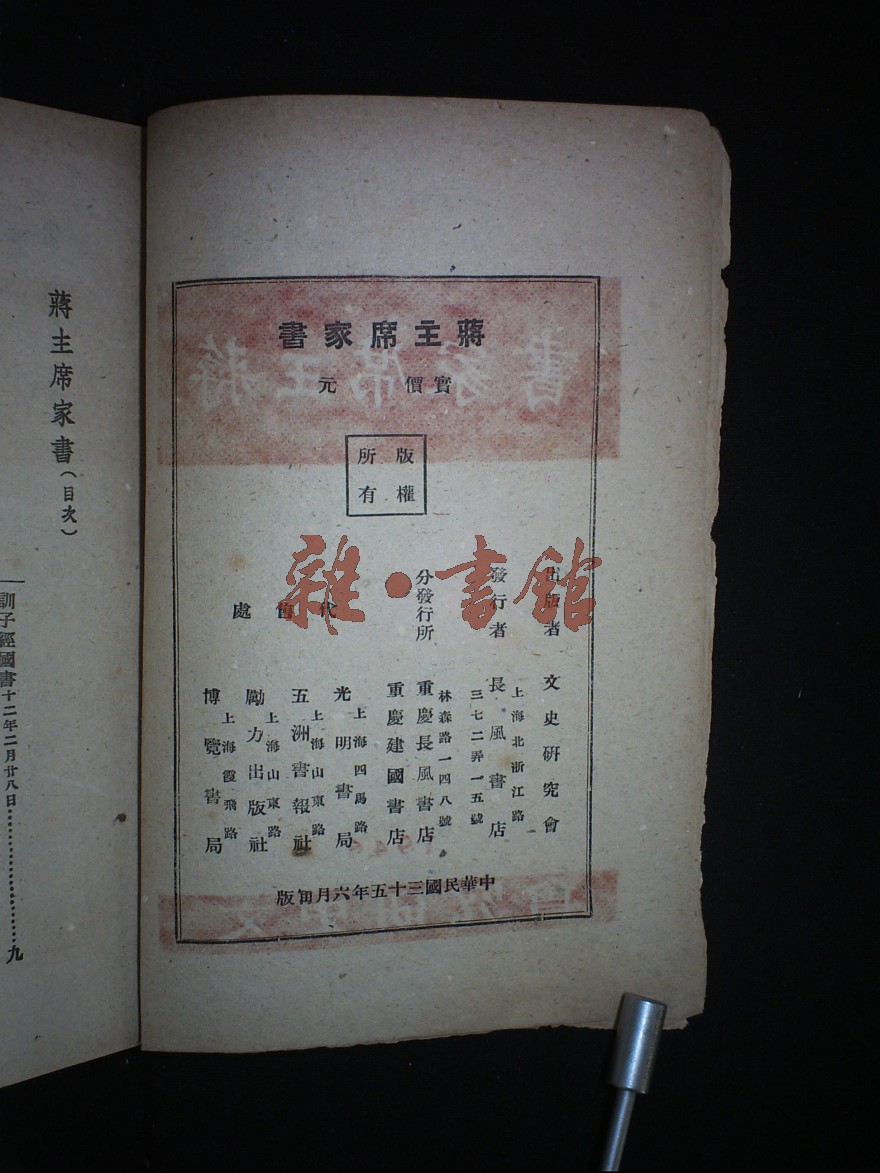 蔣主席家書
實價　元
版權
所有
出版者　文史研究會
發行者　長風書店
上海北浙江路
三七二弄一五號
分發行所　重慶長風書店
林森路一四八號
重慶建國書店
代售處
光明書局
上海四馬路
五洲書報社
上海山東路
勵力出版社
上海山東路
博覽書局
上海霞飛路
中華民國三十五年六月旬版
雜·書館
蔣主席家書
蔣主席家書（目次）
訓子經國書十二年二月廿八日……九